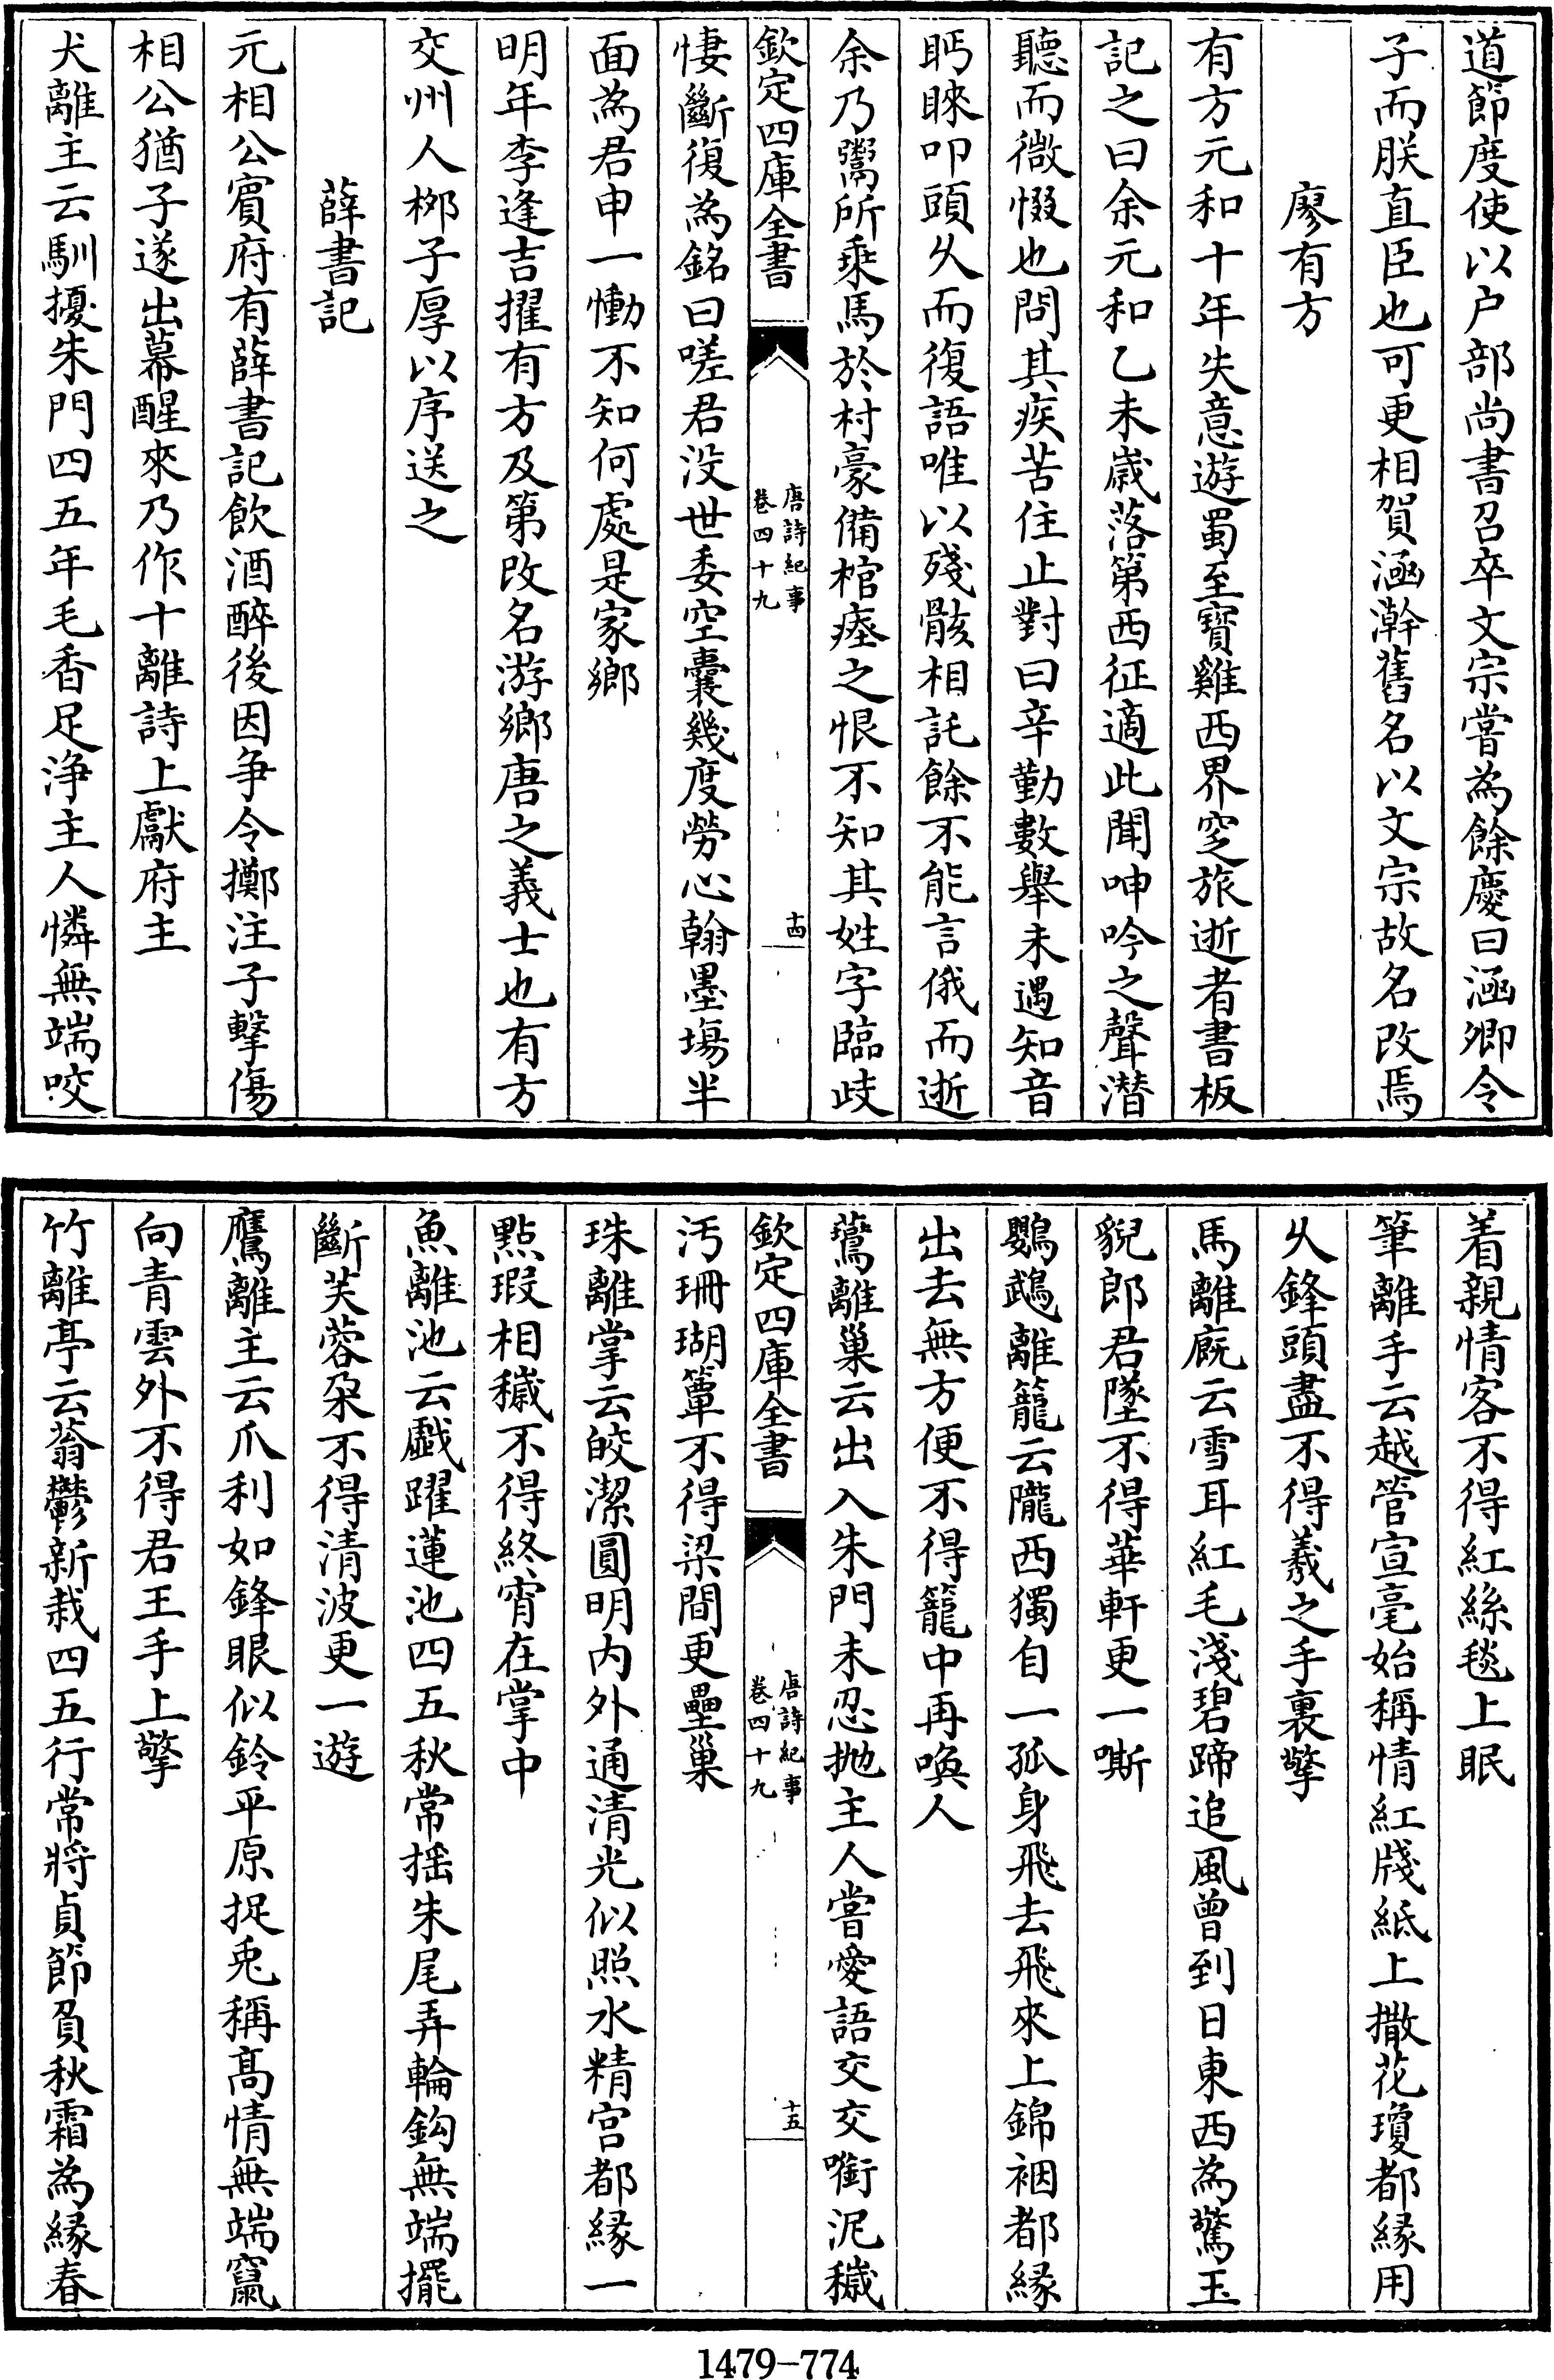 道節度使以户部尚書召卒文宗嘗為餘慶曰涵卿令
子而朕直臣也可更相賀涵瀚舊名以文宗故名改焉
廖有方
有方元和十年失意遊蜀至寶雞西界窆旅逝者書板
記之曰余元和乙未歲落第西征適此聞呻吟之聲潜
聽而微惙也問其疾苦住止對曰辛勤數舉未遇知音
眄睞叩頭乆而復語唯以殘骸相託餘不能言俄而逝
余乃鬻所乗馬於村豪備棺瘞之恨不知其姓字臨歧
欽定四庫全書
唐詩紀事
卷四十九
十四
悽斷復為銘曰嗟君没世委空囊幾度勞心翰墨場半
面為君申一慟不知何處是家鄉
明年李逢吉擢有方及第改名游鄉唐之義士也有方
交州人栁子厚以序送之
薛書記
元相公賓府有薛書記飲酒醉後因争令擲注子擊傷
相公猶子遂出幕醒來乃作十離詩上獻府主
犬離主云馴擾朱門四五年毛香足浄主人憐無端咬
着親情客不得紅絲毯上眠
筆離手云越管宣毫始稱情紅牋紙上撒花瓊都縁用
乆鋒頭盡不得羲之手裏擎
馬離廐云雪耳紅毛淺碧蹄追風曾到日東西為驚玉
貎郎君墜不得華軒更一嘶
鸚鵡離籠云隴西獨自一孤身飛去飛來上錦裀都縁
出去無方便不得籠中再喚人
鷰離巢云出入朱門未忍抛主人嘗愛語交交銜泥穢
欽定四庫全書
唐詩紀事
卷四十九
十五
汚珊瑚簟不得梁間更壘巢
珠離掌云皎潔圓明内外通清光似照水精宫都縁一
點瑕相穢不得終宵在掌中
魚離池云戲躍蓮池四五秋常揺朱尾弄輪鈎無端擺
斷芙蓉朶不得清波更一遊
鷹離主云爪利如鋒眼似鈴平原捉兎稱髙情無端竄
向青雲外不得君王手上擎
竹離亭云蓊鬱新栽四五行常將貞節負秋霜為縁春
1479-774